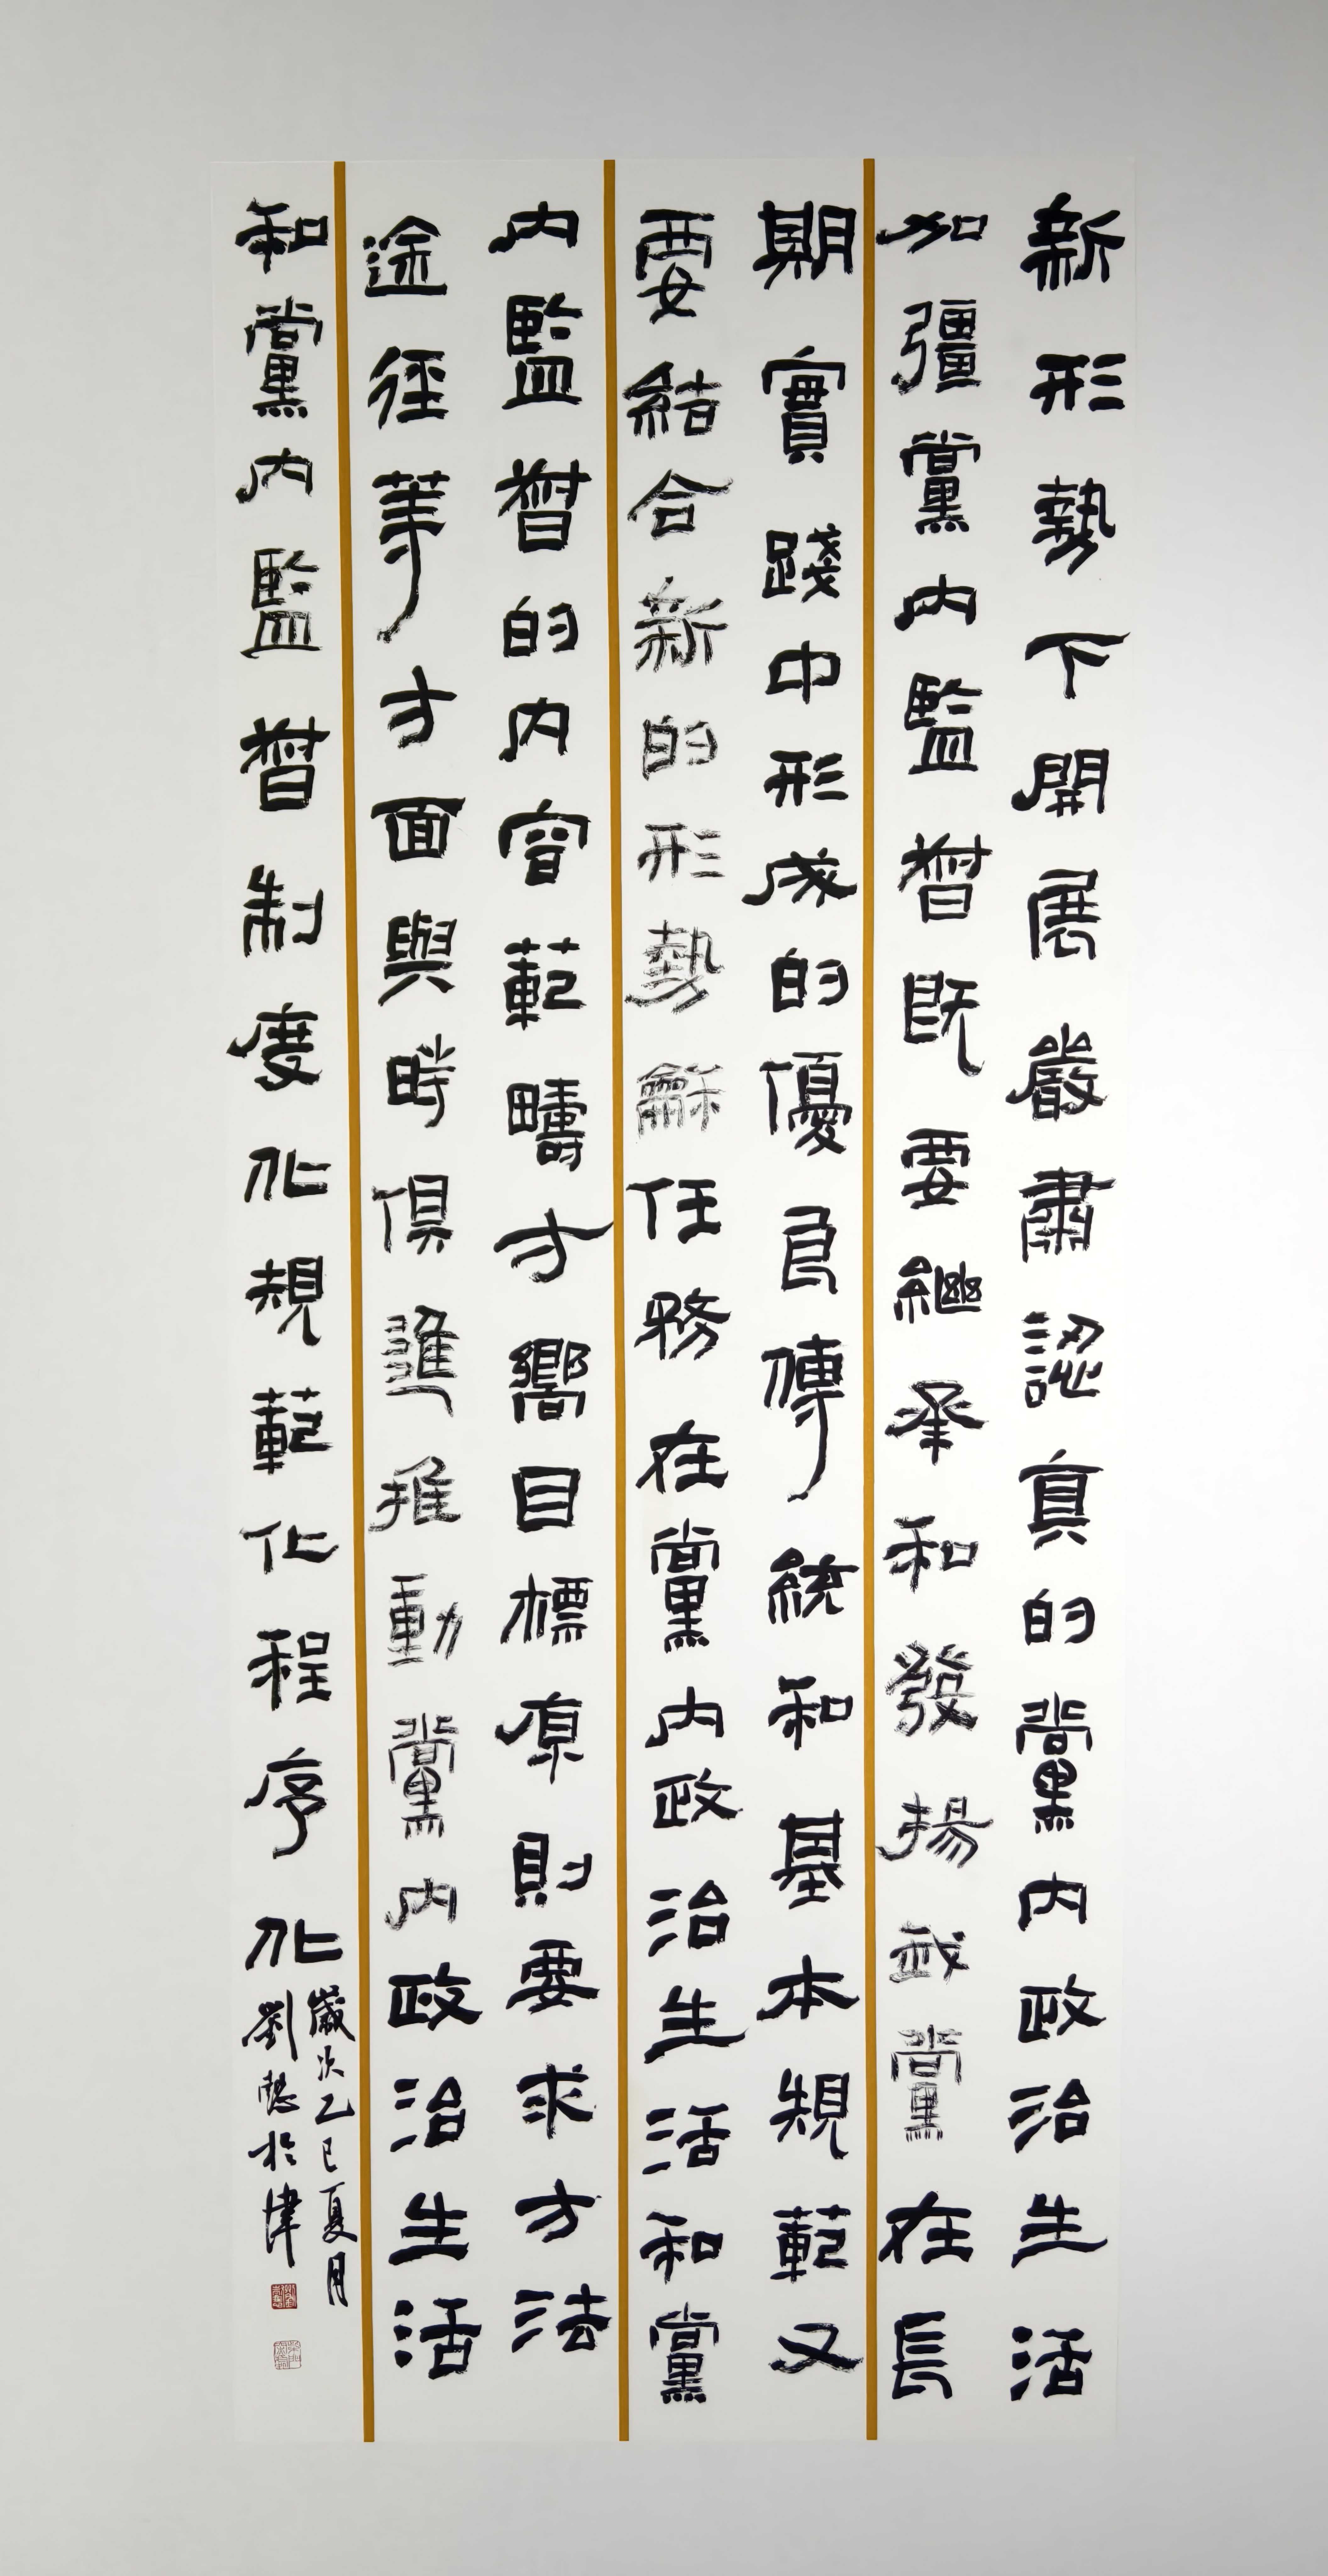 新形勢下開展嚴肅認真的黨内政治生活
加彊黨内監督既要繼承和發揚我黨在長
期實踐中形成的優良傳統和基本規範又
要結合新的形勢龢任務在黨内政治生活和黨
内監督的内容範疇方嚮目標原則要求方法
途徑等方面與時俱進推動黨内政治生活
和黨内監督制度化規範化程序化
歲次乙巳夏月
劉懿於津